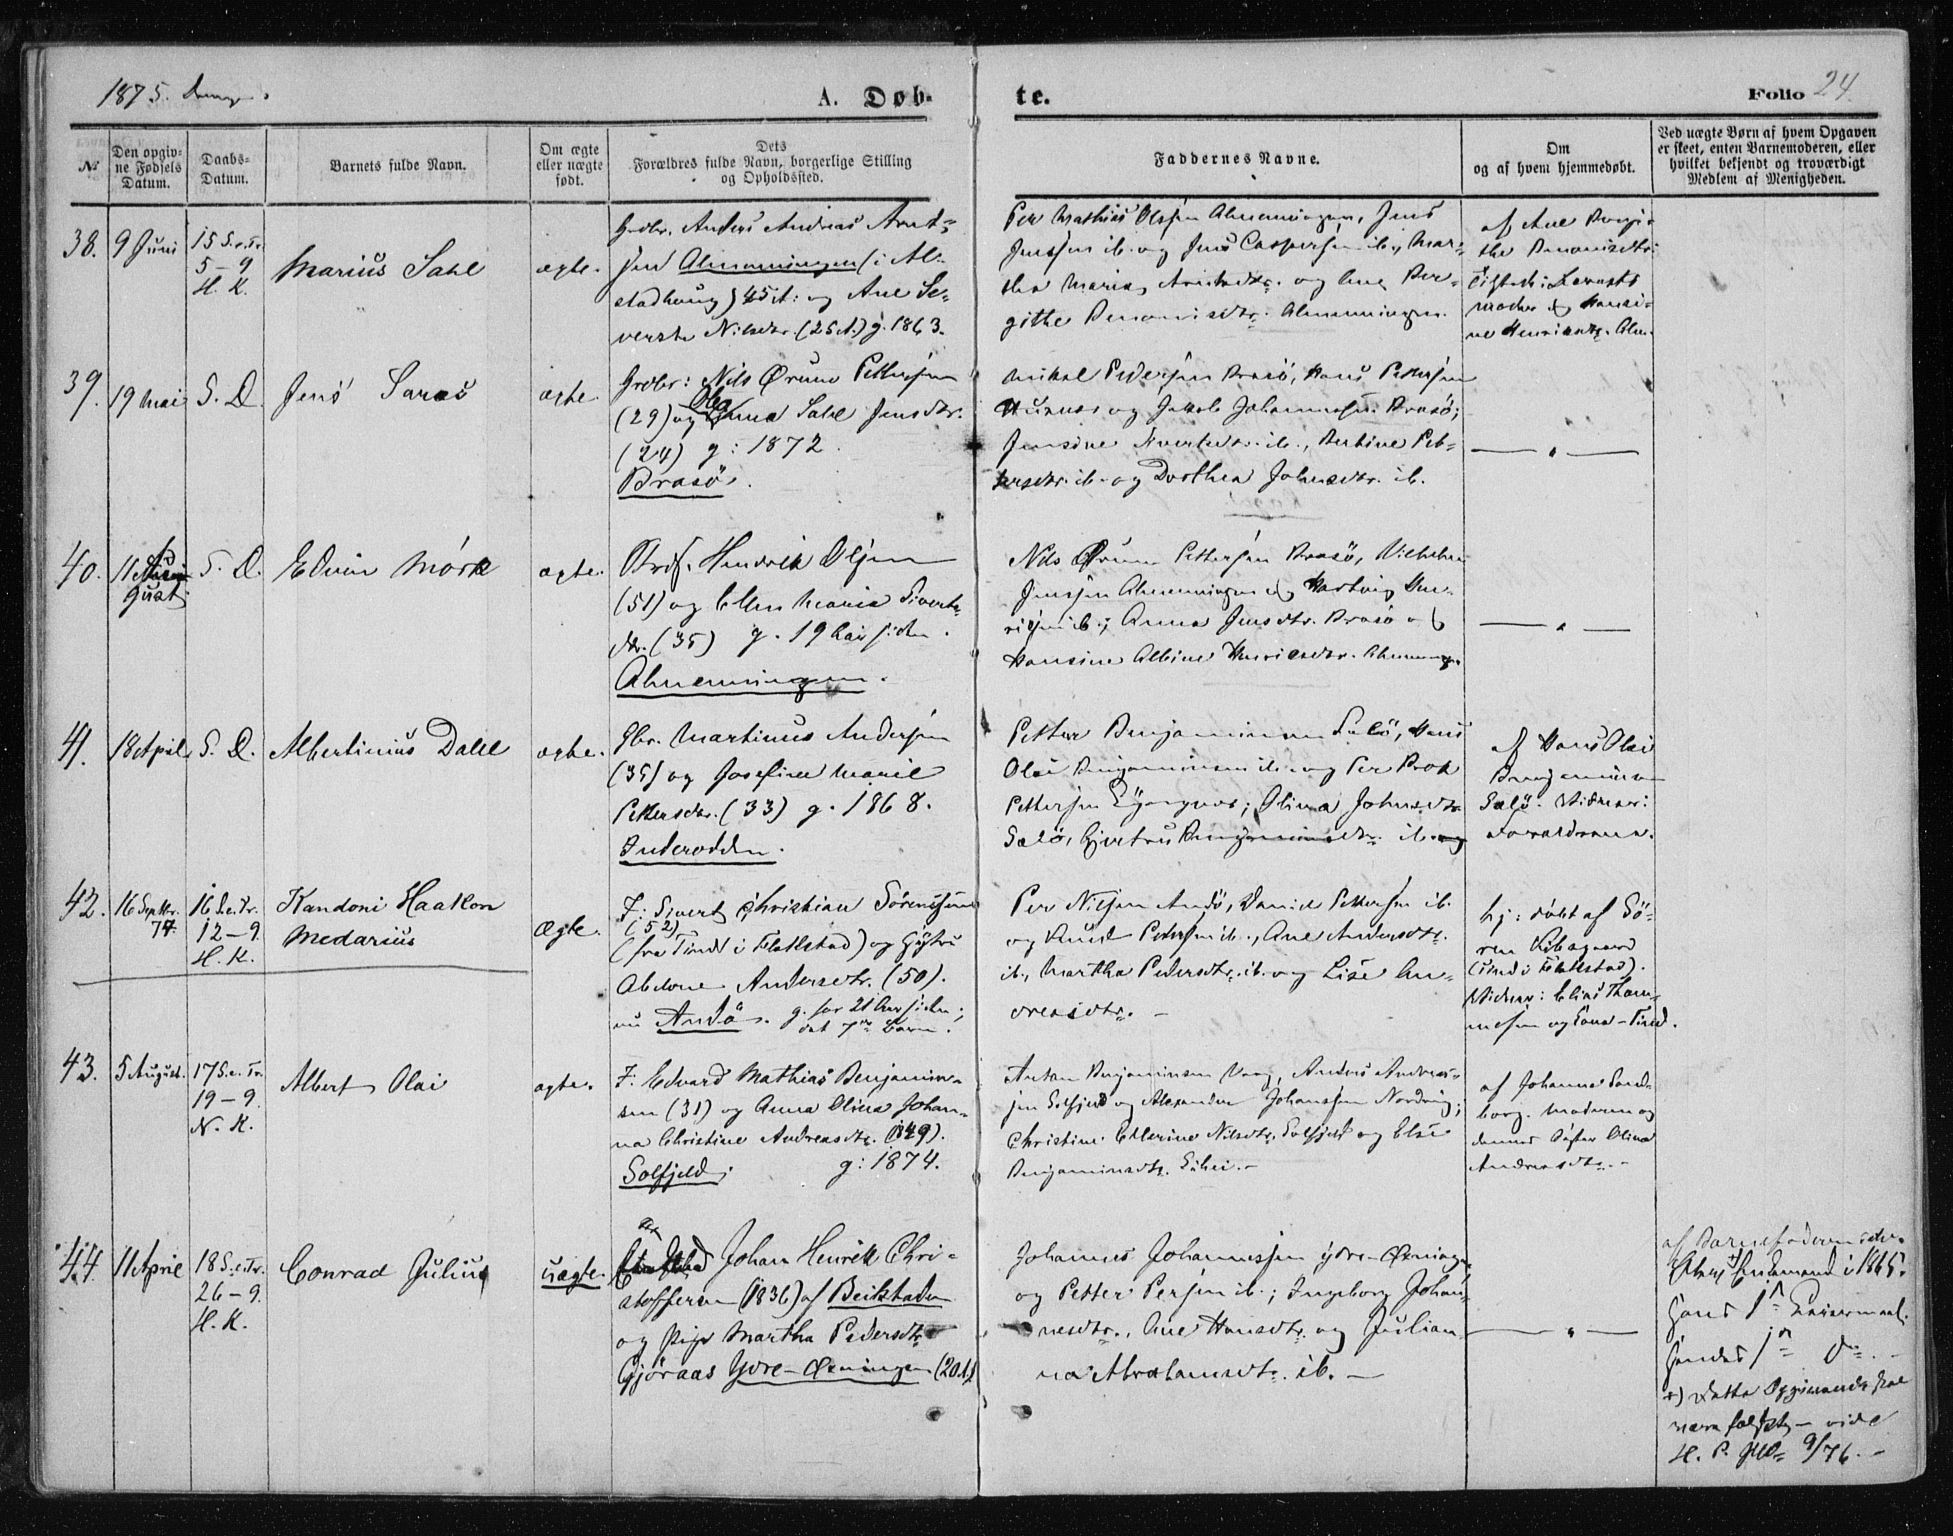 1875.
A. Døb-
te.
Folio 24.
№
Den opgiv-
ne Fødsels
Datum.
Daabs-
Datum.
Barnets fulde Navn.
Om ægte
eller uægte
født.
Dets
Forældres fulde Navn, borgerlige Stilling
og Opholdssted.
Faddernes Navne.
Om
og af hvem hjemmedøbt.
Ved uægte Børn af hvem Opgaven
er skeet, enten Barnemoderen, eller
hvilket bekjendt og troværdigt
Medlem af Menigheden.
38. 9 Juni
15 S. e. Tr.
5 - 9
H. K.
Marius Sahl
ægte.
Grdbr. Anders Andreas Arnt-
sen Almenningen (i Al-
stadhaug) 45 A: og Ane Se-
verste Nilsdtr. (25 A.) g. 1863.
Per Mathias Olsen Almenningen, Jens
Jenssen ib. og Jens Caspersen ib., Mar-
tha Maria Arntsdtr. og Ane Ber-
githe Benonisdtr. Almenningen.
af Ane Bergi-
the Benonisdtr:
39. 19 Mai S. D. Jens Saras ægte.
Grdbr: Nils Ørum Pettersen
(29) og Olea Anna Sahl Jensdtr.
(24) g: 1872.
Brasø.
Mikal Pedersen Brasø, Hans Pettersen
og Jakob Johannessen Brasø;
Jensine Sivertsdtr. ib., Bertine Pet-
tersdtr. ib. og Dorthea Johnsdtr. ib.
— " —
40. 11 August S. D. Edvin Mörk ægte.
Hendrik Olsen
(51) og Ellen Maria Siverts-
dtr. (35) g. 19 Aar siden.
Almenningen.
Nils Ørum Pettersen Brasø, Vilhelm
Jenssen Almenningen og Hartvig Hen-
riksen ib.; Anna Jensdtr. Brasø og
Hansine Albine Henriksdtr. Almenningen.
— " —
41. 18 April S. D. Albertinius Dahl ægte.
Gbr. Martinus Andersen
(35) og Josefine Marie
Pettersdtr. (33) g. 1868.
Inderodden.
Petter Benjaminsen Salø, Hans
Olai Benjaminsen ib. og Per Brok
Pettersen; Olina Johnsdtr.
Salø, Gjertru Benjaminsdtr. ib. og
af Hans Olai
Benjaminsen
Salø. Vidner:
Forældrene.
42. 16 Septbr.
74.
16 S. e. Tr.
12 - 9.
H. K.
Kandoni Haakon
Medarius
Ægte.
F: Sivert Christian Sörenssen
(52)
(fra Tind i Flakstad) og Gjertru
Abelone Andersdtr. (50).
nu Andø. g. for 21 Aar siden;
det 7de Barn.
Per Nilsen Andø, Daniel Pettersen ib.
og Knud Pedersen ib., Ane Andersdtr.
ib., Martha Pedersdtr. ib. og Lise An-
dreasdtr. -
hj: døbt af Sö-
ren
(Tind i Flakstad).
Vidner: Elias Thom-
mesen og Tind.
43. 5 August.
17 S. e. Tr.
19 - 9.
N. K.
Albert Olai
ægte.
F: Edvard Mathias Benjamin-
sen (31) og Anna Olina Johan-
na Christine Andreasdtr. (1849).
Solfjeld. g: 1874.
Anton Benjaminsen Vaag, Anders Andreas-
sen Solfjeld og Alexander Johanssen Nordvig;
Christine Ellerine Nilsdtr. Solfjeld og Else
Benjaminsdtr.
af Johanna Sand-
borg. Moderen og
dennes Søster Olina
Andreasdtr. -
44. 11 April
18 S. e. Tr.
26 - 9.
H. K.
Conrad Julius
uægte.
Johan Henrik Chri-
stoffersen (1836) af Beitstaden
og Pige Martha Pedersdtr.
Gjøraas Ydre-Øxningen (20 A.)
Johannes Johannessen ydre-Øxningen
og Petter Persen ib.; Ingeborg Johan-
nesdtr., Ane Hansdtr. og Julian-
na Abrahamsdtr. ib. -
— " —
af Barnefaderen
Enkemand i 1865.
Hans 1ste Leiermaal.
Hendes 1ste do. -
x) Dette Opgivende skal
være falskt - vide
H. P. 9/76. -